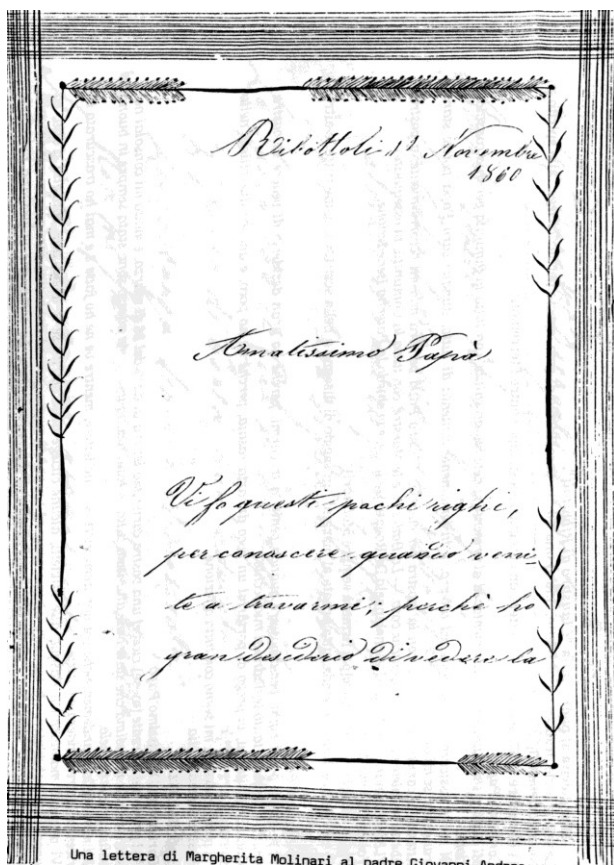 Ribottoli, 11 Novembre
1860
Amatissimo Papà
Vi fo questi pochi righi,
per conoscere quando veni-
te a trovarmi; perchè ho
gran desiderio di vedere la
Una lettera di Margherita Molinari al padre Giovanni Andrea